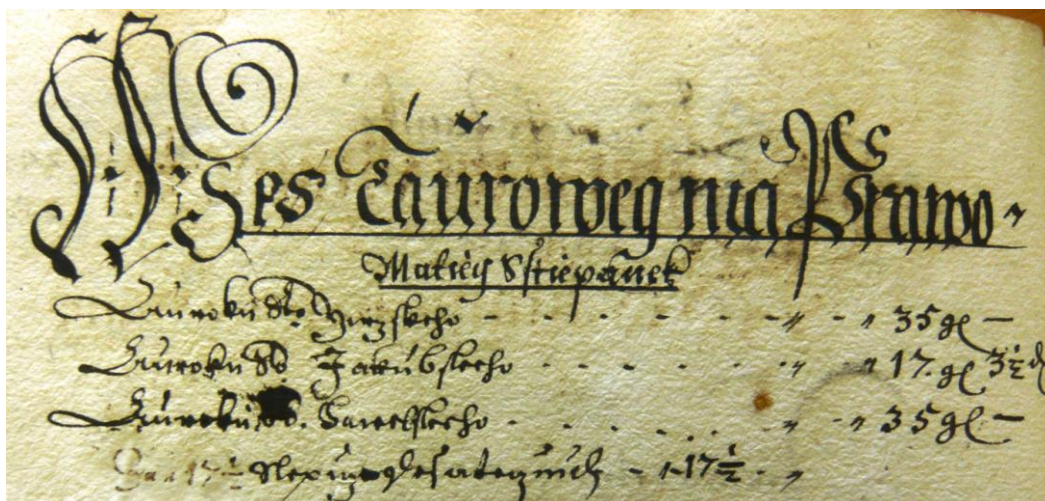 Wes Taurowey ma Prawo
Matieg Sstiepanek
Auroku Sto Girzskeho - - - - - " - " 35 gl -
Auroku S Jakubskeho - - - - " " 17 gl 3½ d
Auroku S. Hawelskeho - - - - - " " 35 gl -
17½ Slepiug desateg - " 17½ "